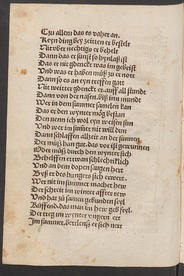 Tzu allem das es vahet an.
Keyn ding bey zeitten er bestelt
Nit uber nechtigs er behelt
Dann das er sunst so hynläßig ist
Das er nit gdenckt was im gebrist
Und was er haben müß zu er nott
Dann so es an eyn treffen gatt
Nit weitter gdenckt er auff all stundt
Dann von der nasen biß inn mundt
Wer in dem summer samlen kan
Das er den wynter mög bestan
Den nenn ich wol eyn wisen sun
Und wer im summer nit will dun
Dann schlaffen allzeit an der sunnen
Der müß han gut das vor ist gewunnen
Oder müß durch den wynter sich
Behelffen ettwan schlechtiklich
Und an dem dopen sugen hert
Biß er des hungers sich erwert
Wer nit im summer machet hew
Der schreit im winter affter
Und hat zu samen gebunden seyl
Rüffend das man im hew geb feyl
Der treg im wynter ungern ert
Im summer bettlens er sich nert